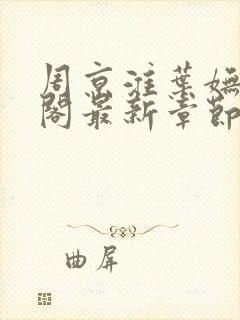 周京淮葉嫵
閣最新章節
曲屏